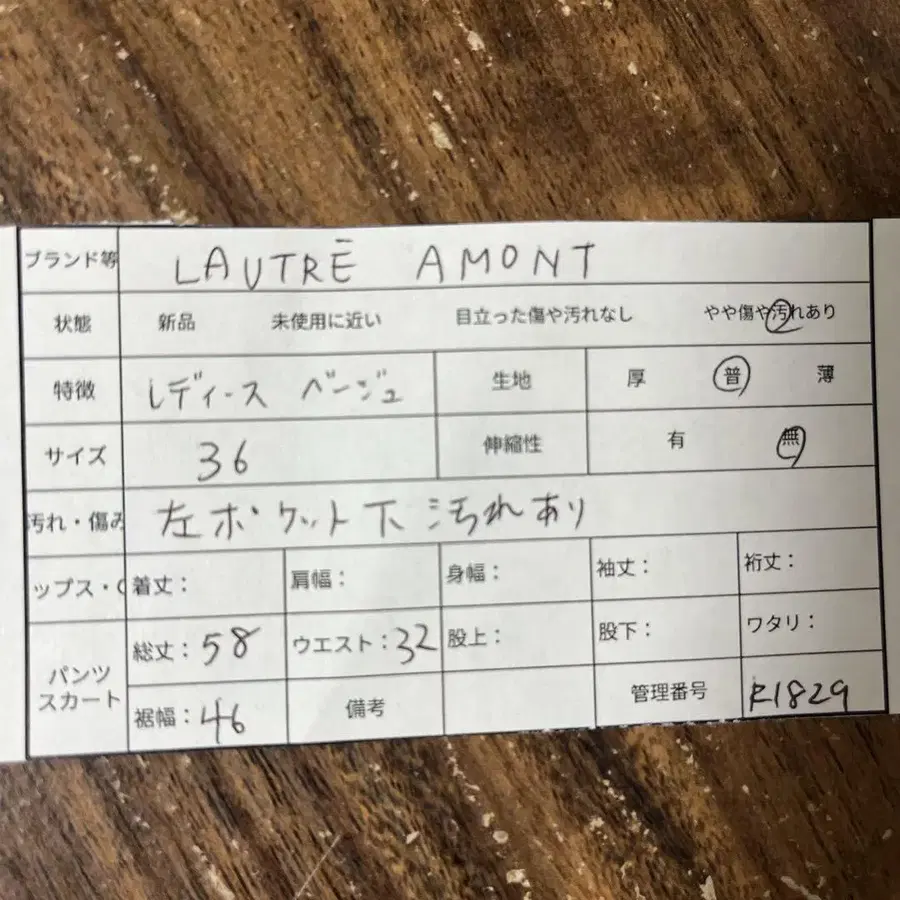 ブランド等 LAUTRĒ AMONT
状態 新品 未使用に近い 目立った傷や汚れなし やや傷や汚れあり
特徴 レディース ベージュ 生地 厚 普 薄
サイズ 36 伸縮性 有 無
汚れ・傷み 左ポケット下汚れあり
ップス・ 着丈： 肩幅： 身幅： 袖丈： 裄丈：
パンツ
スカート
総丈：58 ウエスト：32 股上： 股下： ワタリ：
裾幅：46 備考 管理番号 R1829